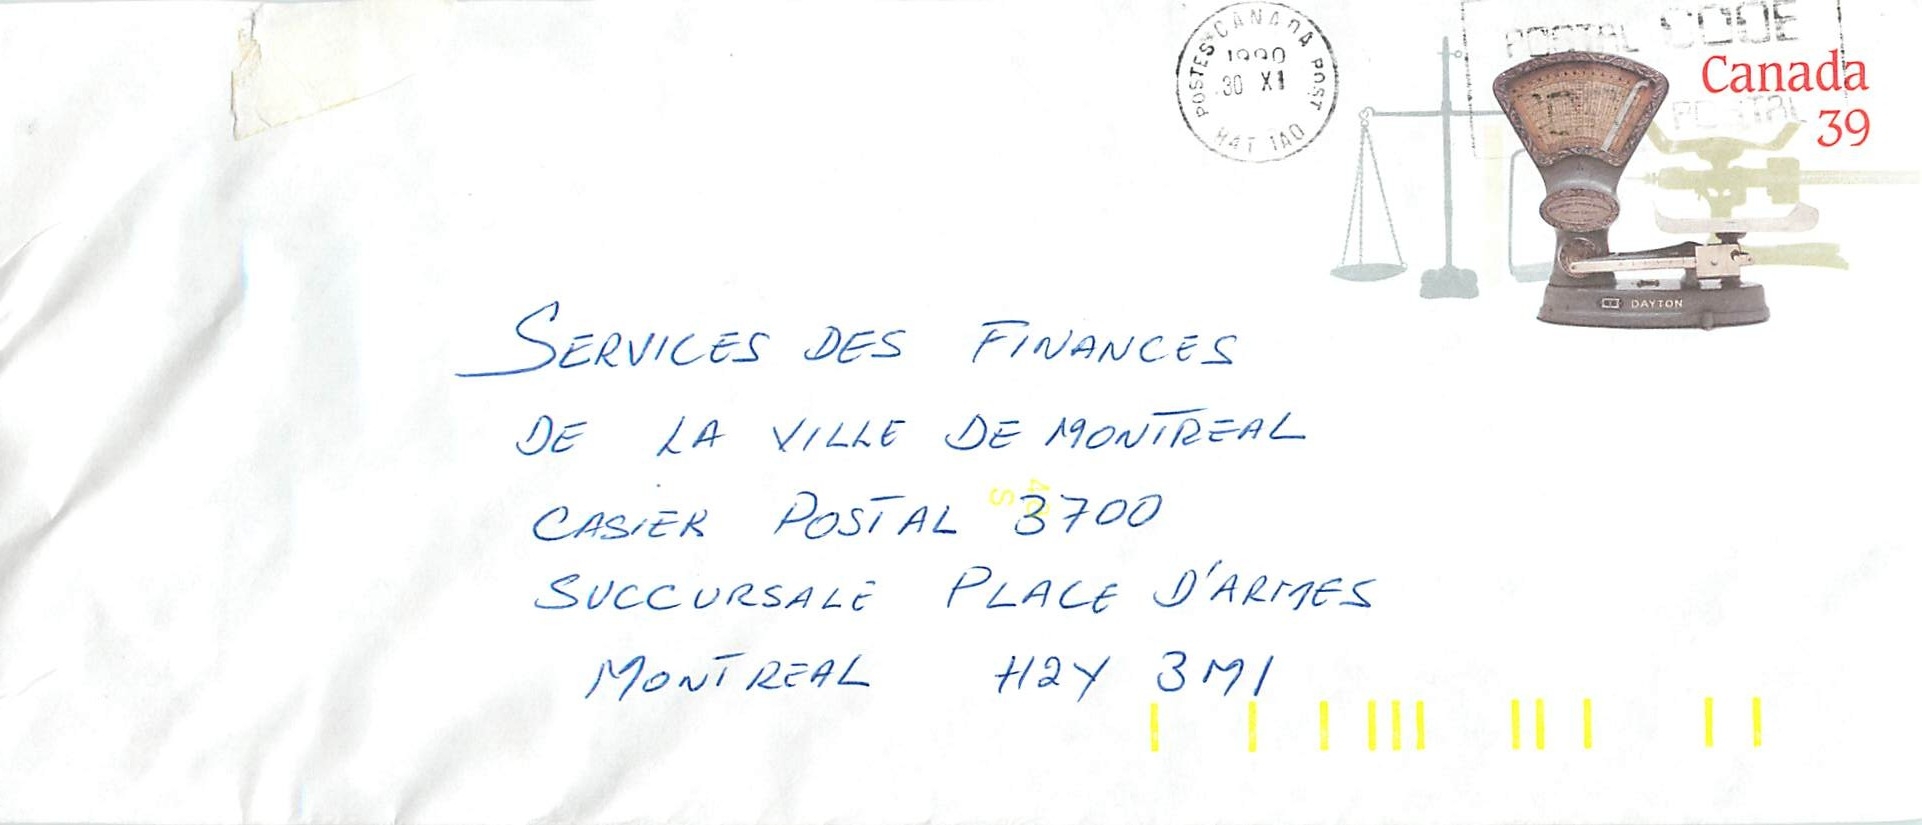 POSTES CANADA POST
1990
30 XI
H4T 1A0
POSTAL CODE
POSTAL
Canada
39
DAYTON
SERVICES DES FINANCES
DE LA VILLE DE MONTREAL
CASIER POSTAL 3700
SUCCURSALE PLACE D'ARMES
MONTREAL H2Y 3M1